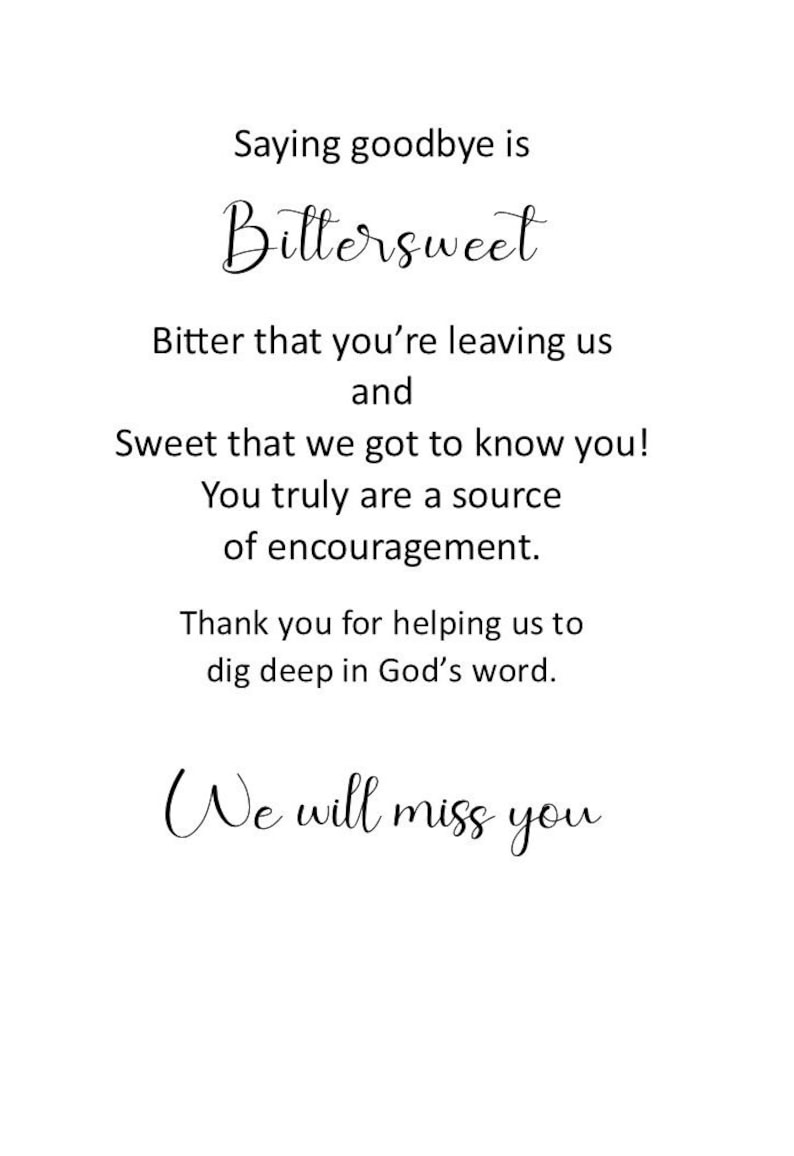 Saying goodbye is
Bittersweet
Bitter that you’re leaving us
and
Sweet that we got to know you!
You truly are a source
of encouragement.
Thank you for helping us to
dig deep in God’s word.
We will miss you